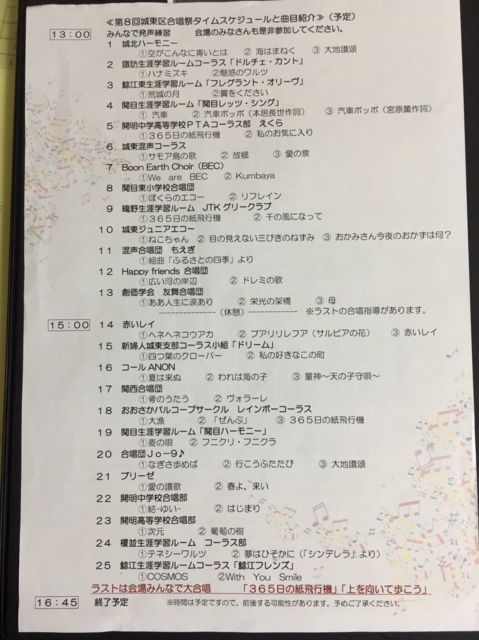 ≪第8回城東区合唱祭タイムスケジュールと曲目紹介≫(予定)
13:00 みんなで発声練習 会場のみなさんも是非参加してください。
1 城北ハーモニー
①空がこんなに青いとは ② 海はまねく ③ 大地讃頌
2 諏訪生涯学習ルームコーラス「ドルチェ・カント」
①ハナミズキ ②魅惑のワルツ
3 鯰江東生涯学習ルーム「フレグラント・オリーヴ」
①荒城の月 ②翼をください
4 関目生涯学習ルーム「関目レッツ・シング」
① 汽車 ② 汽車ポッポ(本居長世作詞) ③ 汽車ポッポ(富原薫作詞)
5 開明中学高等学校PTAコーラス部 えくら
①365日の紙飛行機 ② 私のお気に入り
6 城東混声コーラス
①サモア島の歌 ② 故郷 ③ 愛の泉
7 Boon Earth Choir(BEC)
①We are BEC ② Kumbaya
8 関目東小学校合唱団
①ぼくらのエコー ② リフレイン
9 鴫野生涯学習ルーム JTKグリークラブ
①365日の紙飛行機 ② 千の風になって
10 城東ジュニアエコー
①ねこちゃん ② 目の見えない三びきのねずみ ③ おかみさん今夜のおかずは何?
11 混声合唱団 もえぎ
①組曲「ふるさとの四季」より
12 Happy friends 合唱団
①広い河の岸辺 ② ドレミの歌
13 創価学会 友舞合唱団
①ああ人生に涙あり ② 栄光の架橋 ③ 母
--------------(休憩)-------------- ※ラストの合唱指導があります。
15:00 14 赤いレイ
①ヘネヘネコウアカ ② プアリリレフア(サルビアの花) ③ 赤いレイ
15 新婦人城東支部コーラス小組「ドリーム」
①四つ葉のクローバー ② 私の好きなこの町
16 コールANON
①夏は来ぬ ② われは海の子 ③ 童神~天の子守唄~
17 関西合唱団
①骨のうたう ② ヴォラーレ
18 おおさかパルコープサークル レインボーコーラス
①大漁 ② 「ぜんぶ」 ③ 365日の紙飛行機
19 関目生涯学習ルーム「関目ハーモニー」
①麦の唄 ② フニクリ・フニクラ
20 合唱団Jo-9♪
①なぎさ歩めば ② 行こうふたたび ③ 大地讃頌
21 ブリーゼ
①愛の讃歌 ② 春よ、来い
22 開明中学校合唱部
①結-ゆい- ② はじまり
23 開明高等学校合唱部
①次元 ② 葡萄の樹
24 榎並生涯学習ルーム コーラス部
①テネシーワルツ ② 夢はひそかに(「シンデレラ」より)
25 鯰江生涯学習ルームコーラス「鯰江フレンズ」
①COSMOS ②With You Smile
ラストは会場みんなで大合唱 「365日の紙飛行機」「上を向いて歩こう」
16:45 終了予定 ※時間は予定ですので、前後する可能性があります。予めご了承ください。